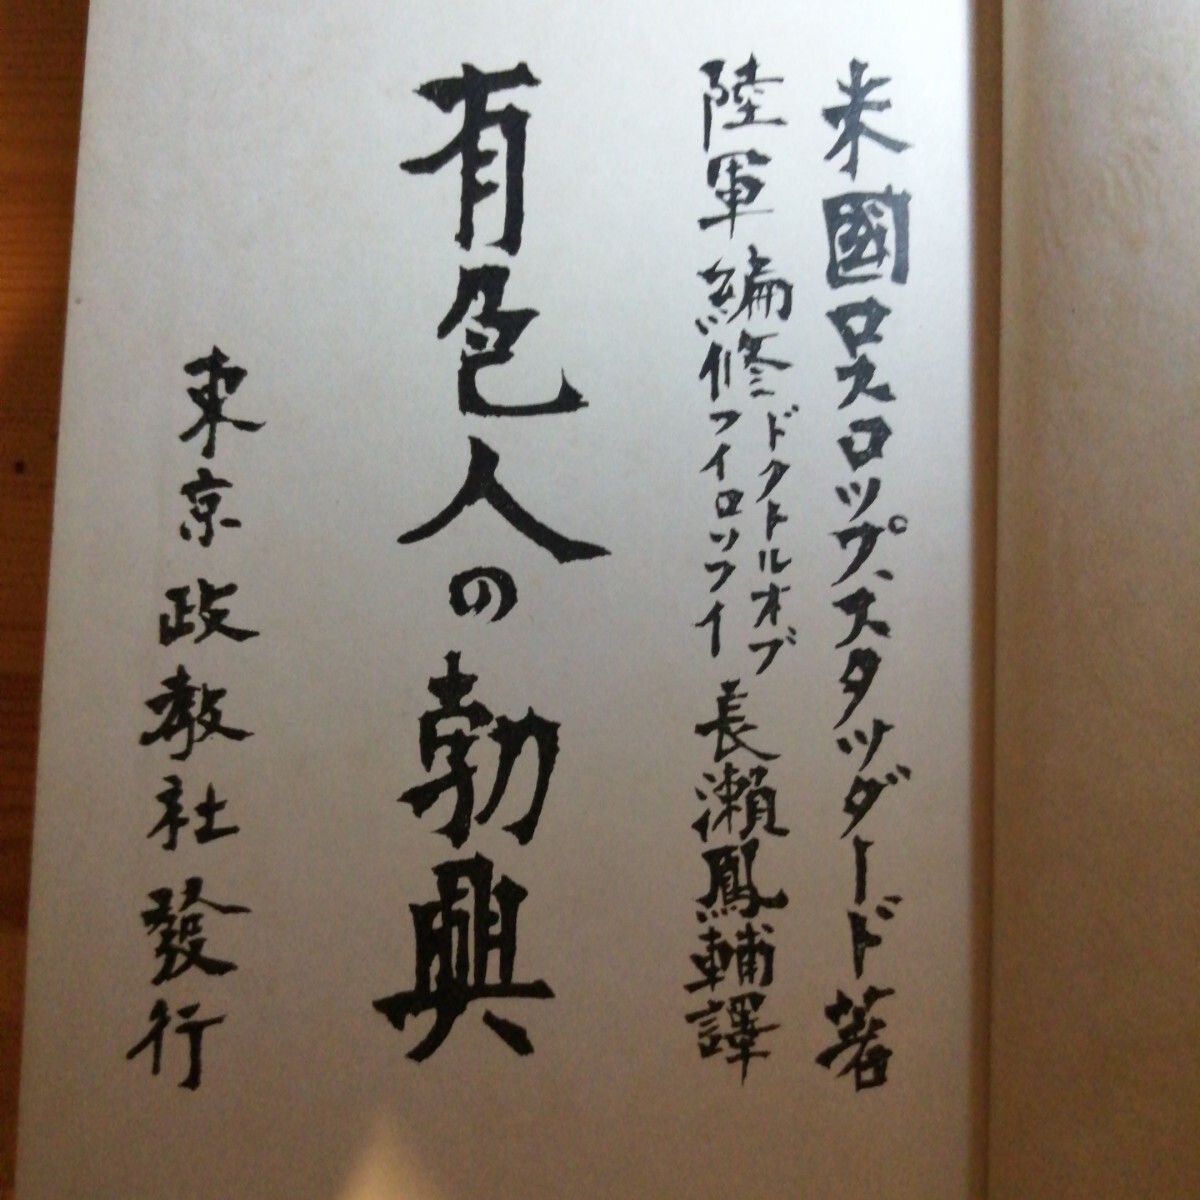 米國ロスロップ、スタッダード著
陸軍編修ドクトルオブフイロソフイ長瀬鳳輔譯
有色人の勃興
東京政敎社發行